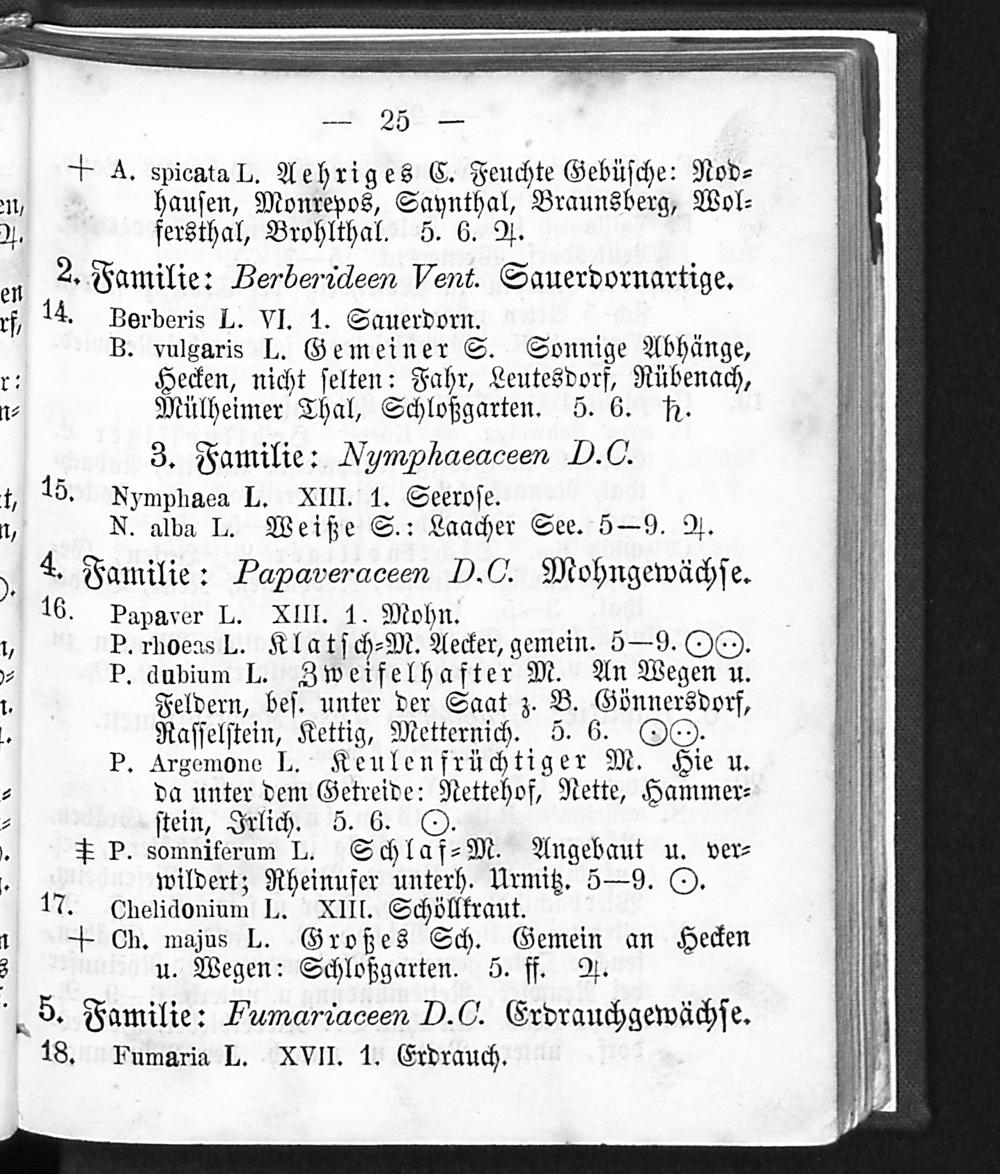 — 25 —
┼ A. spicata L. Aehriges C. Feuchte Gebüsche: Nod⸗
hausen, Monrepos, Saynthal, Braunsberg, Wol⸗
fersthal, Brohlthal. 5. 6. ♃.
2. Familie: Berberideen Vent. Sauerdornartige.
14. Berberis L. VI. 1. Sauerdorn.
B. vulgaris L. Gemeiner S. Sonnige Abhänge,
Hecken, nicht selten: Fahr, Leutesdorf, Rübenach,
Mülheimer Thal, Schloßgarten. 5. 6. ♄.
3. Familie: Nymphaeaceen D.C.
15. Nymphaea L. XIII. 1. Seerose.
N. alba L. Weiße S.: Laacher See. 5—9. ♃.
4. Familie: Papaveraceen D.C. Mohngewächse.
16. Papaver L. XIII. 1. Mohn.
P. rhoeas L. Klatsch⸗M. Aecker, gemein. 5—9. ⊙⊙.
P. dubium L. Zweifelhafter M. An Wegen u.
Feldern, bes. unter der Saat z. B. Gönnersdorf,
Rasselstein, Kettig, Metternich. 5. 6. ⊙⊙.
P. Argemone L. Keulenfrüchtiger M. Hie u.
da unter dem Getreide: Nettehof, Nette, Hammer⸗
stein, Irlich. 5. 6. ⊙.
‡ P. somniferum L. Schlaf⸗M. Angebaut u. ver⸗
wildert; Rheinufer unterh. Urmitz. 5—9. ⊙.
17. Chelidonium L. XIII. Schöllkraut.
┼ Ch. majus L. Großes Sch. Gemein an Hecken
u. Wegen: Schloßgarten. 5. ff. ♃.
5. Familie: Fumariaceen D.C. Erdrauchgewächse.
18. Fumaria L. XVII. 1. Erdrauch.